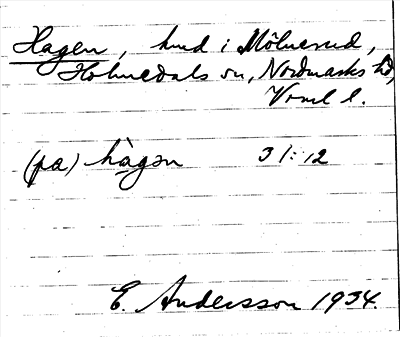 Hagen, hmd i Mölnerud,
Holmedals sn, Nordmarks hd,
Vrml l.
(pa) hàgən 31:12
E. Andersson 1934.